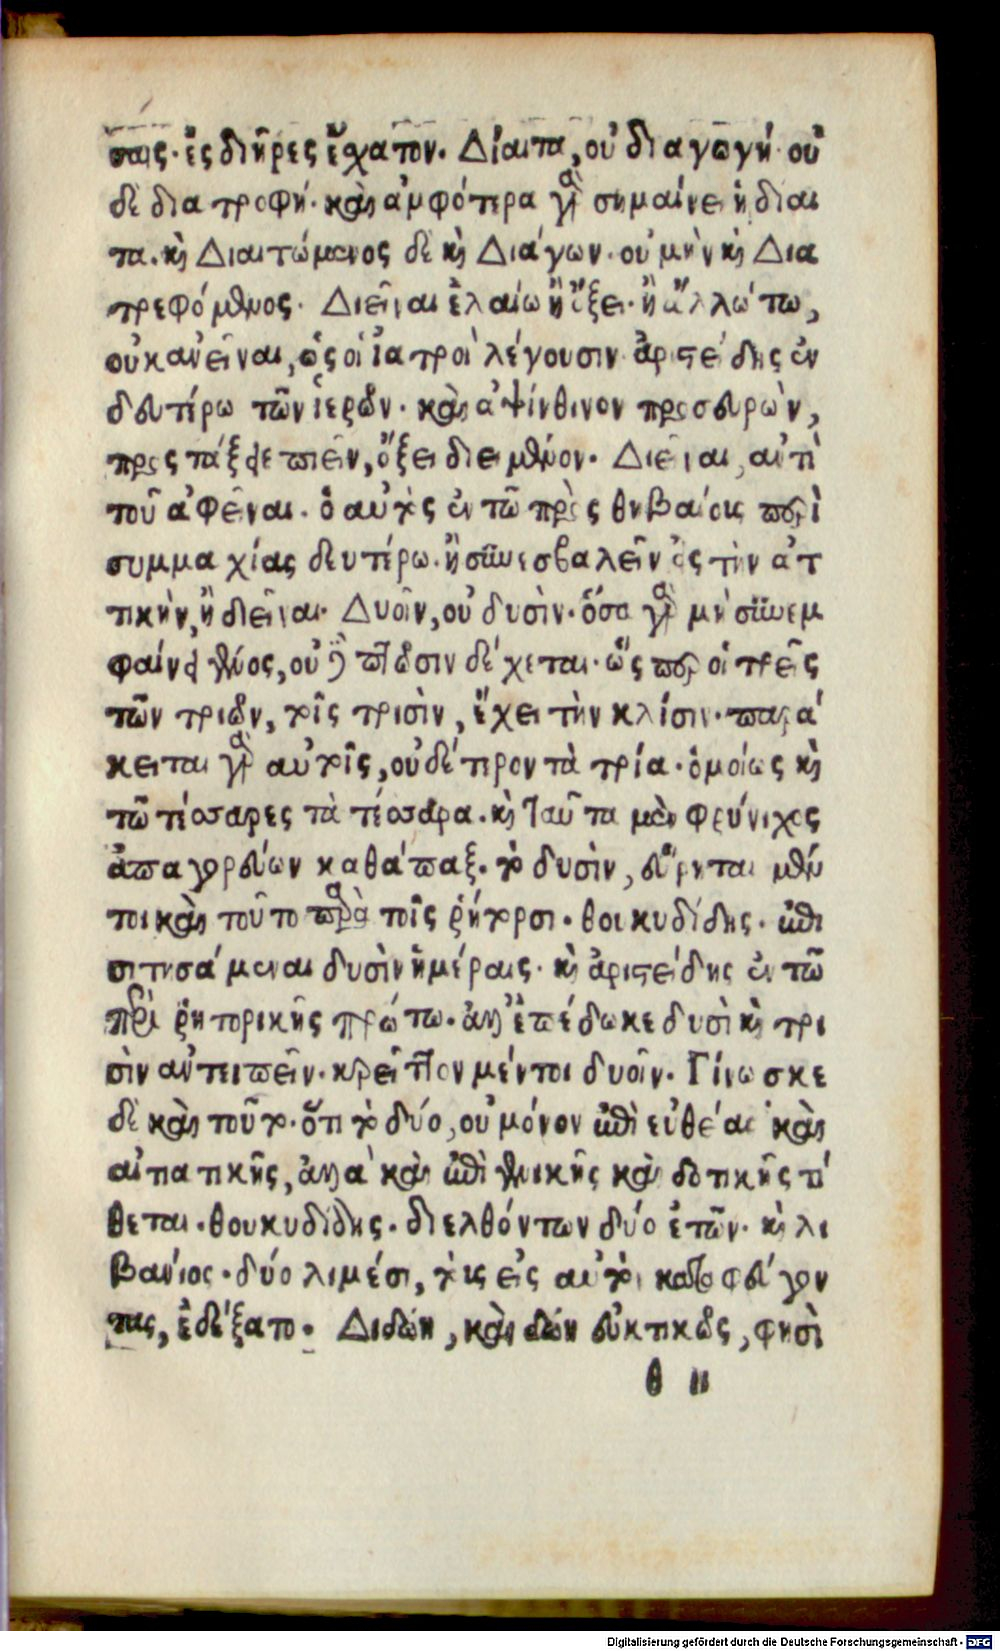 σαις· ἐς διῆρες ἔχατον. Δίαιτα, οὐ διαγωγή· οὐ
δὲ διατροφή· καὶ ἀμφότερα γὰρ σημαίνει ἡ δίαι
τα. καὶ Διαιτώμενος δὲ καὶ Διάγων· οὐ μὴν καὶ Δια
τρεφόμενος. Διεῖναι ἐλαίω ἢ ὄξει· ἢ ἄλλώ τω,
οὐκ ἀνεῖναι, ὡς οἱ ἰατροὶ λέγουσιν· ἀριστείδης ἐν
δευτέρω τῶν ἱερῶν· καὶ ἀψίνθινον προσευρὼν,
πρὸς τάξαι πιεῖν, ὄξει διειμένον. Διεῖναι, ἀντὶ
τοῦ ἀφεῖναι. ὁ αὐτὸς ἐν τῶ πρὸς θηβαίοις περὶ
συμμαχίας δευτέρω. ἢ συνεσβαλεῖν ἐς τὴν ἀτ
τικὴν, ἢ διεῖναι. Δυοῖν, οὐ δυσὶν. ὅσα γὰρ μὴ συνεμ
φαίνει γένος, οὐ τὸ πτῶσιν δέχεται. ὥσπερ οἱ τρεῖς
τῶν τριῶν, τοῖς τρισὶν, ἔχει τὴν κλίσιν. παρά
κειται γὰρ αὐτοῖς, οὐδέτερον τὰ τρία. ὁμοίως καὶ
τῶ τέσσαρες τὰ τέσσαρα. καὶ ταῦτα μὲν φρύνιχος
ἀπαγορεύων καθάπαξ. τὸ δυσὶν, εὕρηται μέν
τοι καὶ τοῦτο παρὰ τοῖς ῥήτορσι. θουκυδίδης. ἐπι
σιτησάμεναι δυσὶν ἡμέραις. καὶ ἀριστείδης ἐν τῶ
περὶ ῥητορικῆς πρώτω. ἀλλ' ἐπέδωκε δυσὶ καὶ τρι
σὶν ἀντειπεῖν. κρεῖττον μέντοι δυοῖν. Γίνωσκε
δὲ καὶ τοῦτο. ὅτι τὸ δύο, οὐ μόνον ἐπὶ εὐθείας καὶ
αἰτιατικῆς, ἀλλὰ καὶ ἐπὶ γενικῆς καὶ δοτικῆς τί
θεται. θουκυδίδης. διελθόντων δύο ἐτῶν. καὶ λι
βανίος. δύο λιμέσι, τοῖς εἰς αὐτὸν καταφεύγον
τας, ἐδέξατο. Διδώη, καὶ δώη εὐκτικῶς, φησὶ
θ ιι
Digitalisierung gefördert durch die Deutsche Forschungsgemeinschaft · DFG